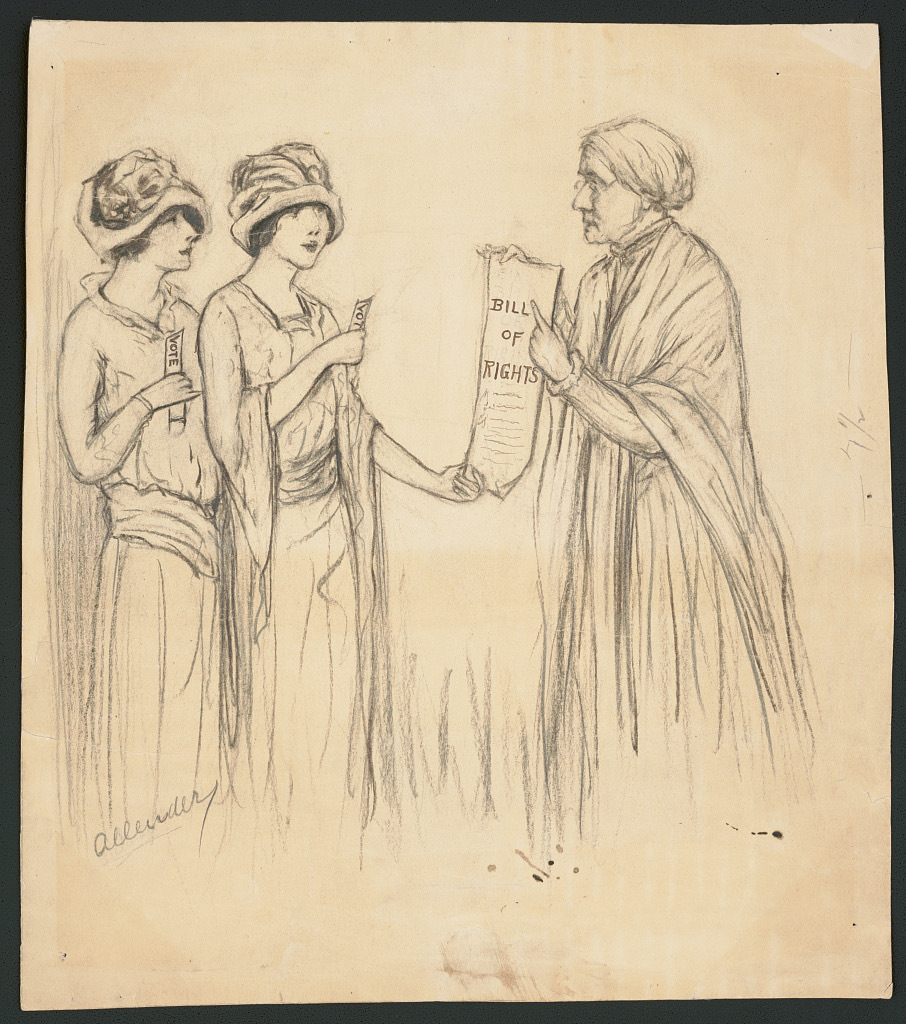 VOTE
VOT
BILL
OF
RIGHTS
Allender
7 1/2